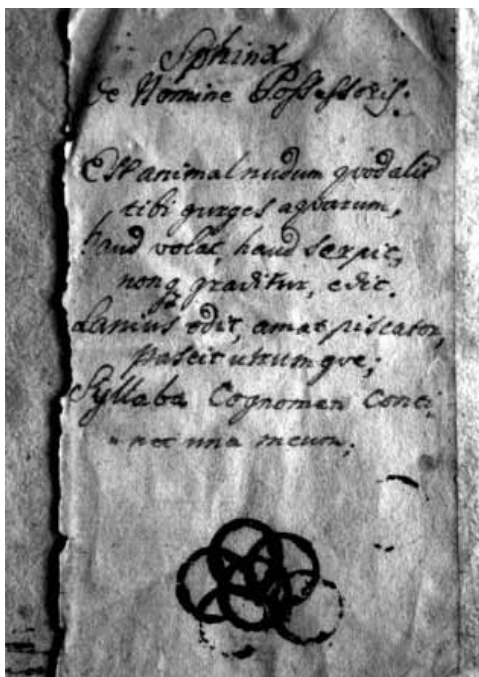 Sphinx
de Nomine Possessoris.
Est animal nudum qvod alit
tibi gurges aqvarum,
haud volat, haud serpit,
nonq graditur, edit.
Lanius odit, amat piscator,
pascit utrumqve;
Syllaba Cognomen Conti,
net una meum;